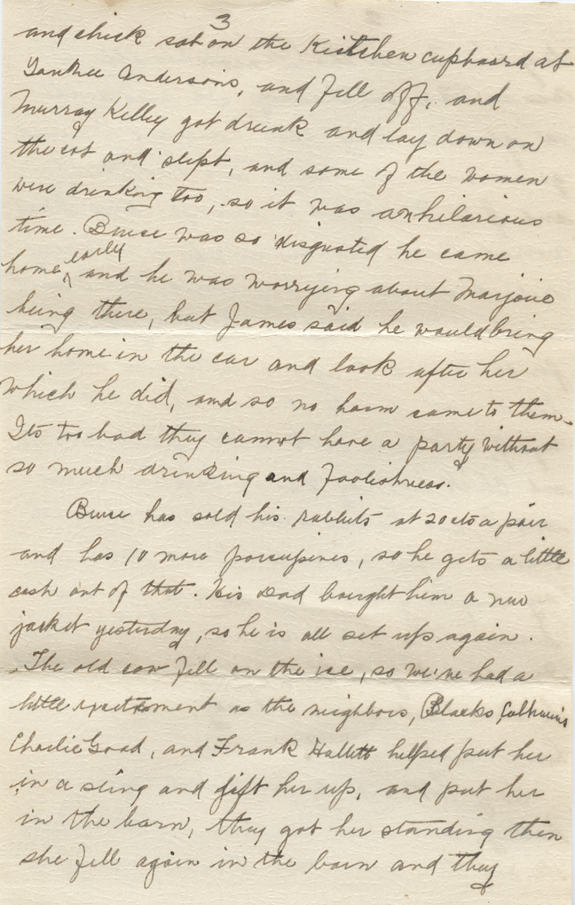 3
and chick sat on the Kistchen cupboard at
Yankee Andersons, and fell off, and
Murray Kelley got drunk and lay down on
the cot and slept, and some of the women
were drinking too, so it was anhilarious
time. Bruce was so disgusted he came
home early and he was worrying about Marjorie
being there, but James said he would bring
her home in the car and look after her
which he did, and so no harm came to them.
Its too bad they cannot have a party without
so much drinking and foolishness.
Bruce has sold his rabbits at 20cts a pair
and has 10 more porcupines, so he gets a little
cash out of that. His Dad bought him a new
jacket yesterday, so he is all set up again.
The old cow fell on the ice, so we've had a
little excitement as the neighbors, Blacks,
Charlie Goad, and Frank Hallett helped put her
in a sling and lift her up, and put her
in the barn, they got her standing then
she fell again in the barn and they